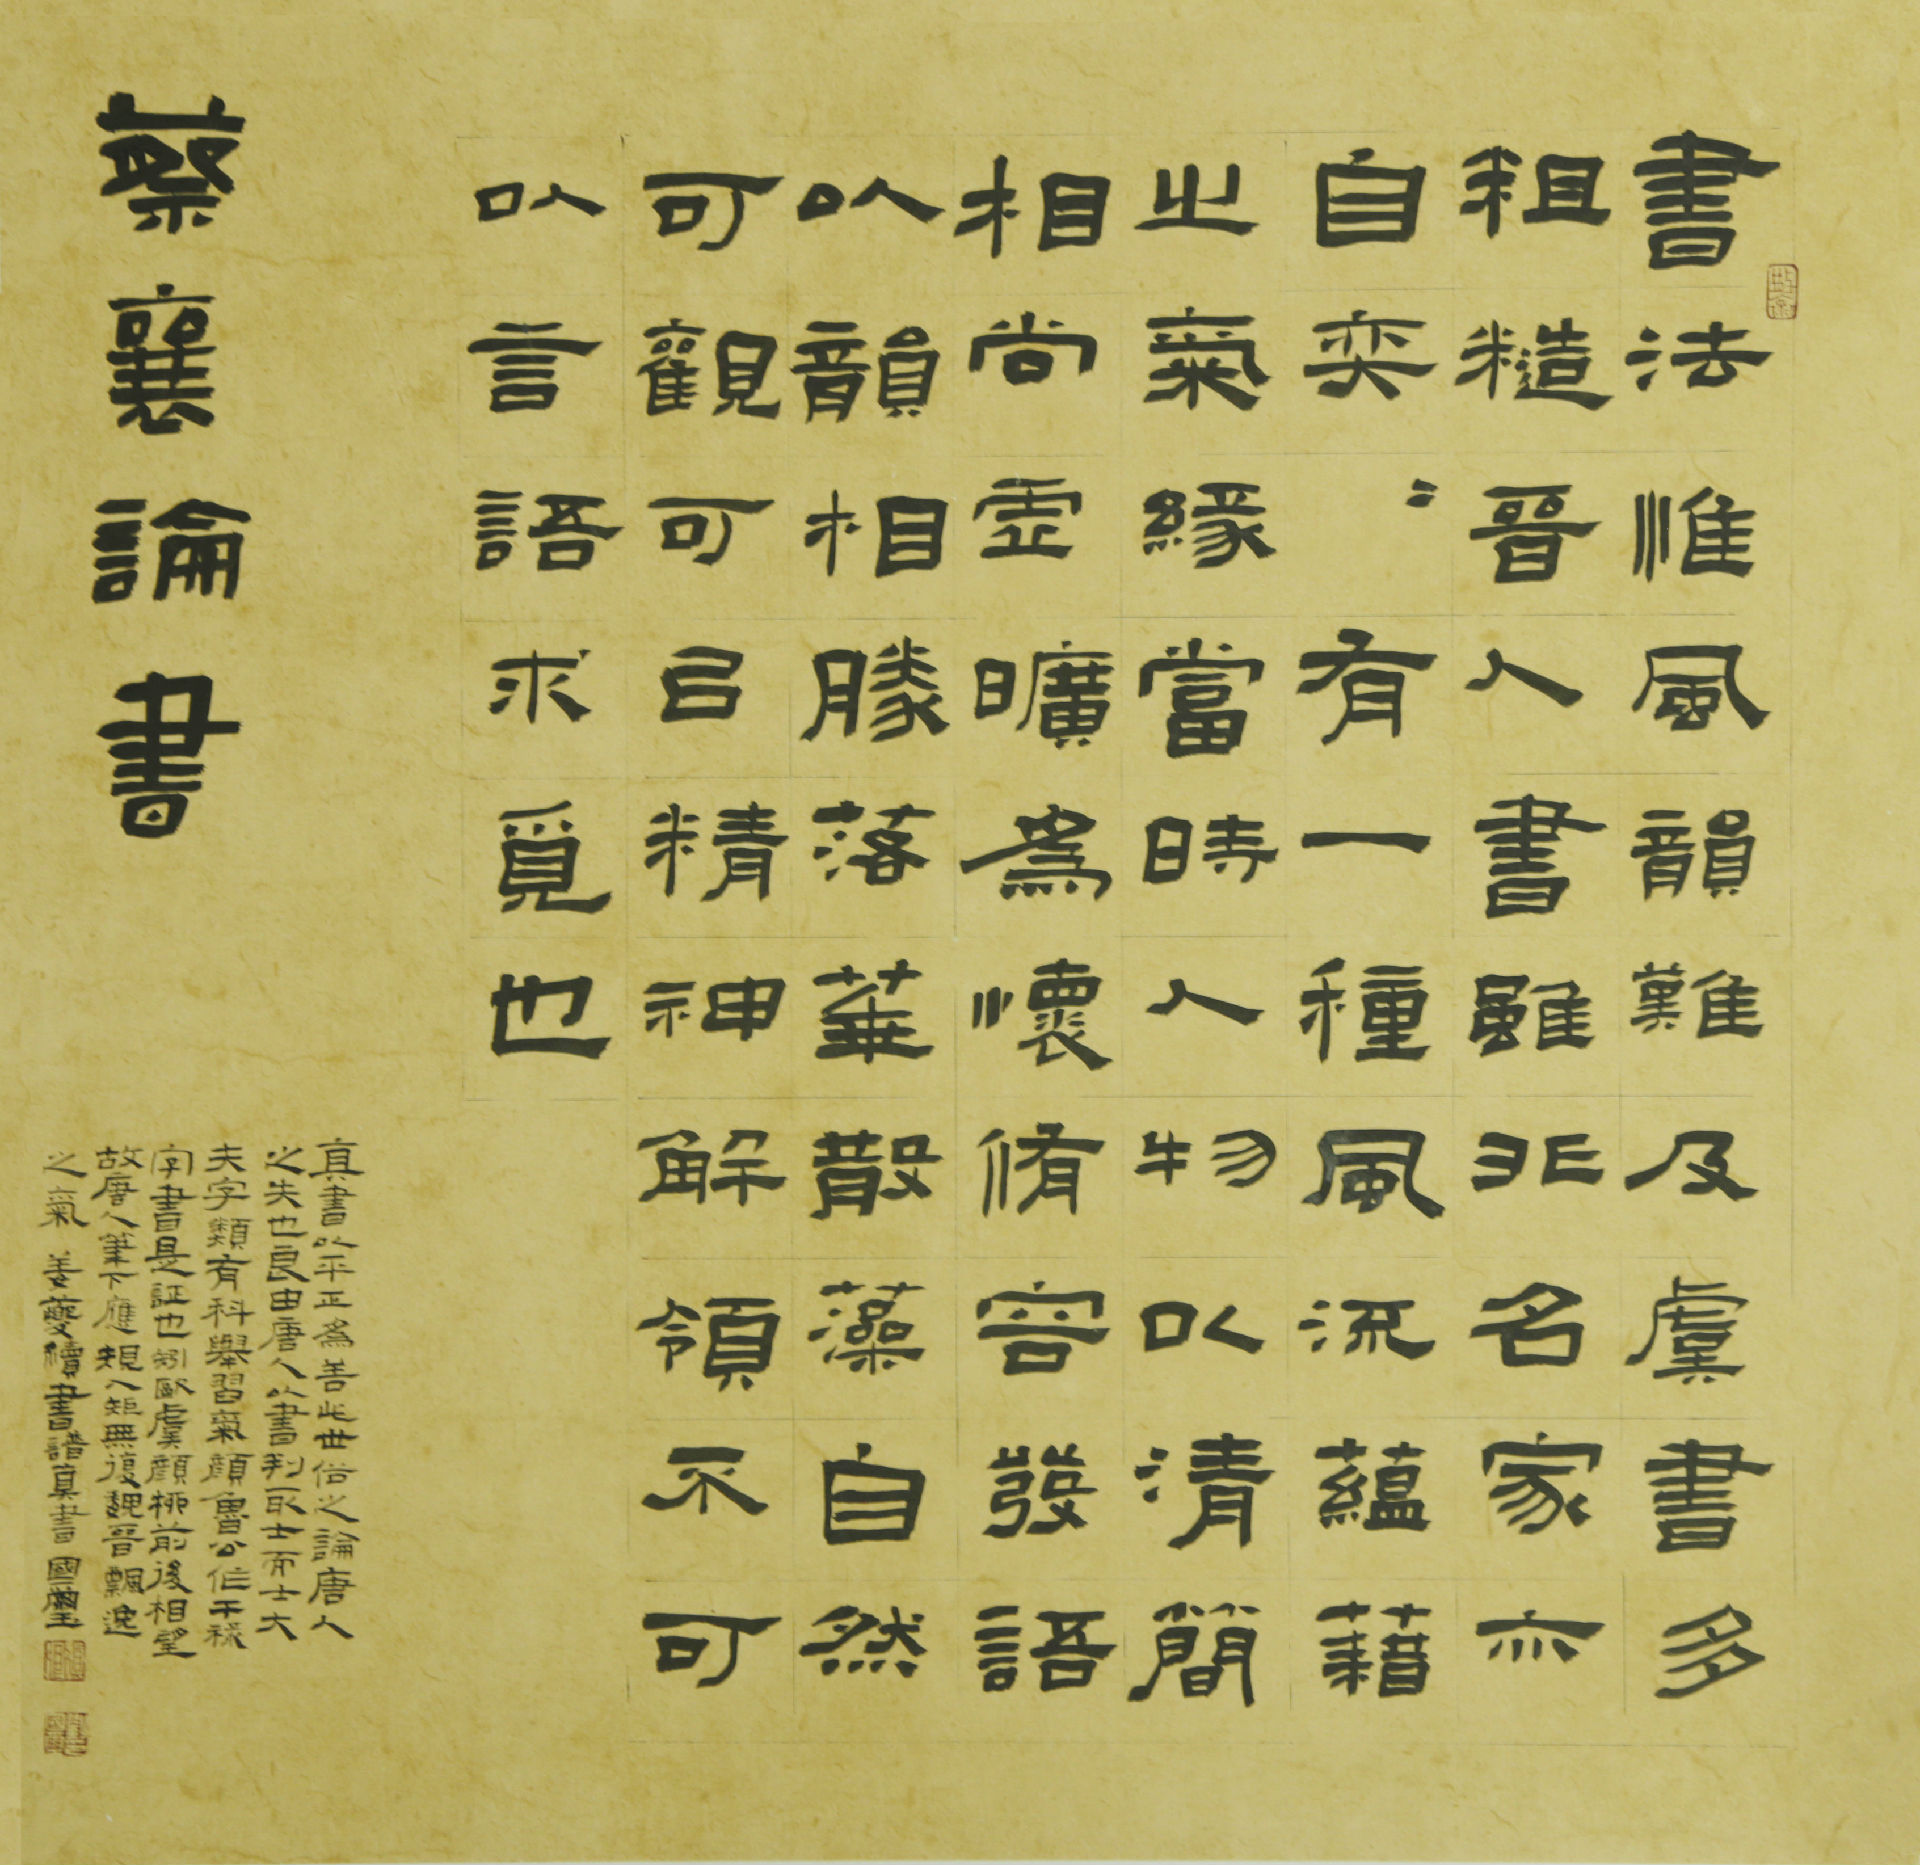 書法惟風韻難及虞書多
粗糙晉人書雖非名家亦
自奕〻有一種風流蘊藉
之氣緣當時人物以清簡
相尚虛曠為懷脩容發語
以韻相勝落華散藻自然
可觀可㠯精神解領不可
以言語求覓也
蔡襄論書
真書以平正為善此世俗之論唐人
之失也良由唐人以書判取士而士大
夫字類有科舉習氣顏魯公作干祿
字書是証也矧歐虞顏柳前後相望
故唐人筆下應規入矩無復魏晉飄逸
之氣 姜夔續書譜真書 國璽